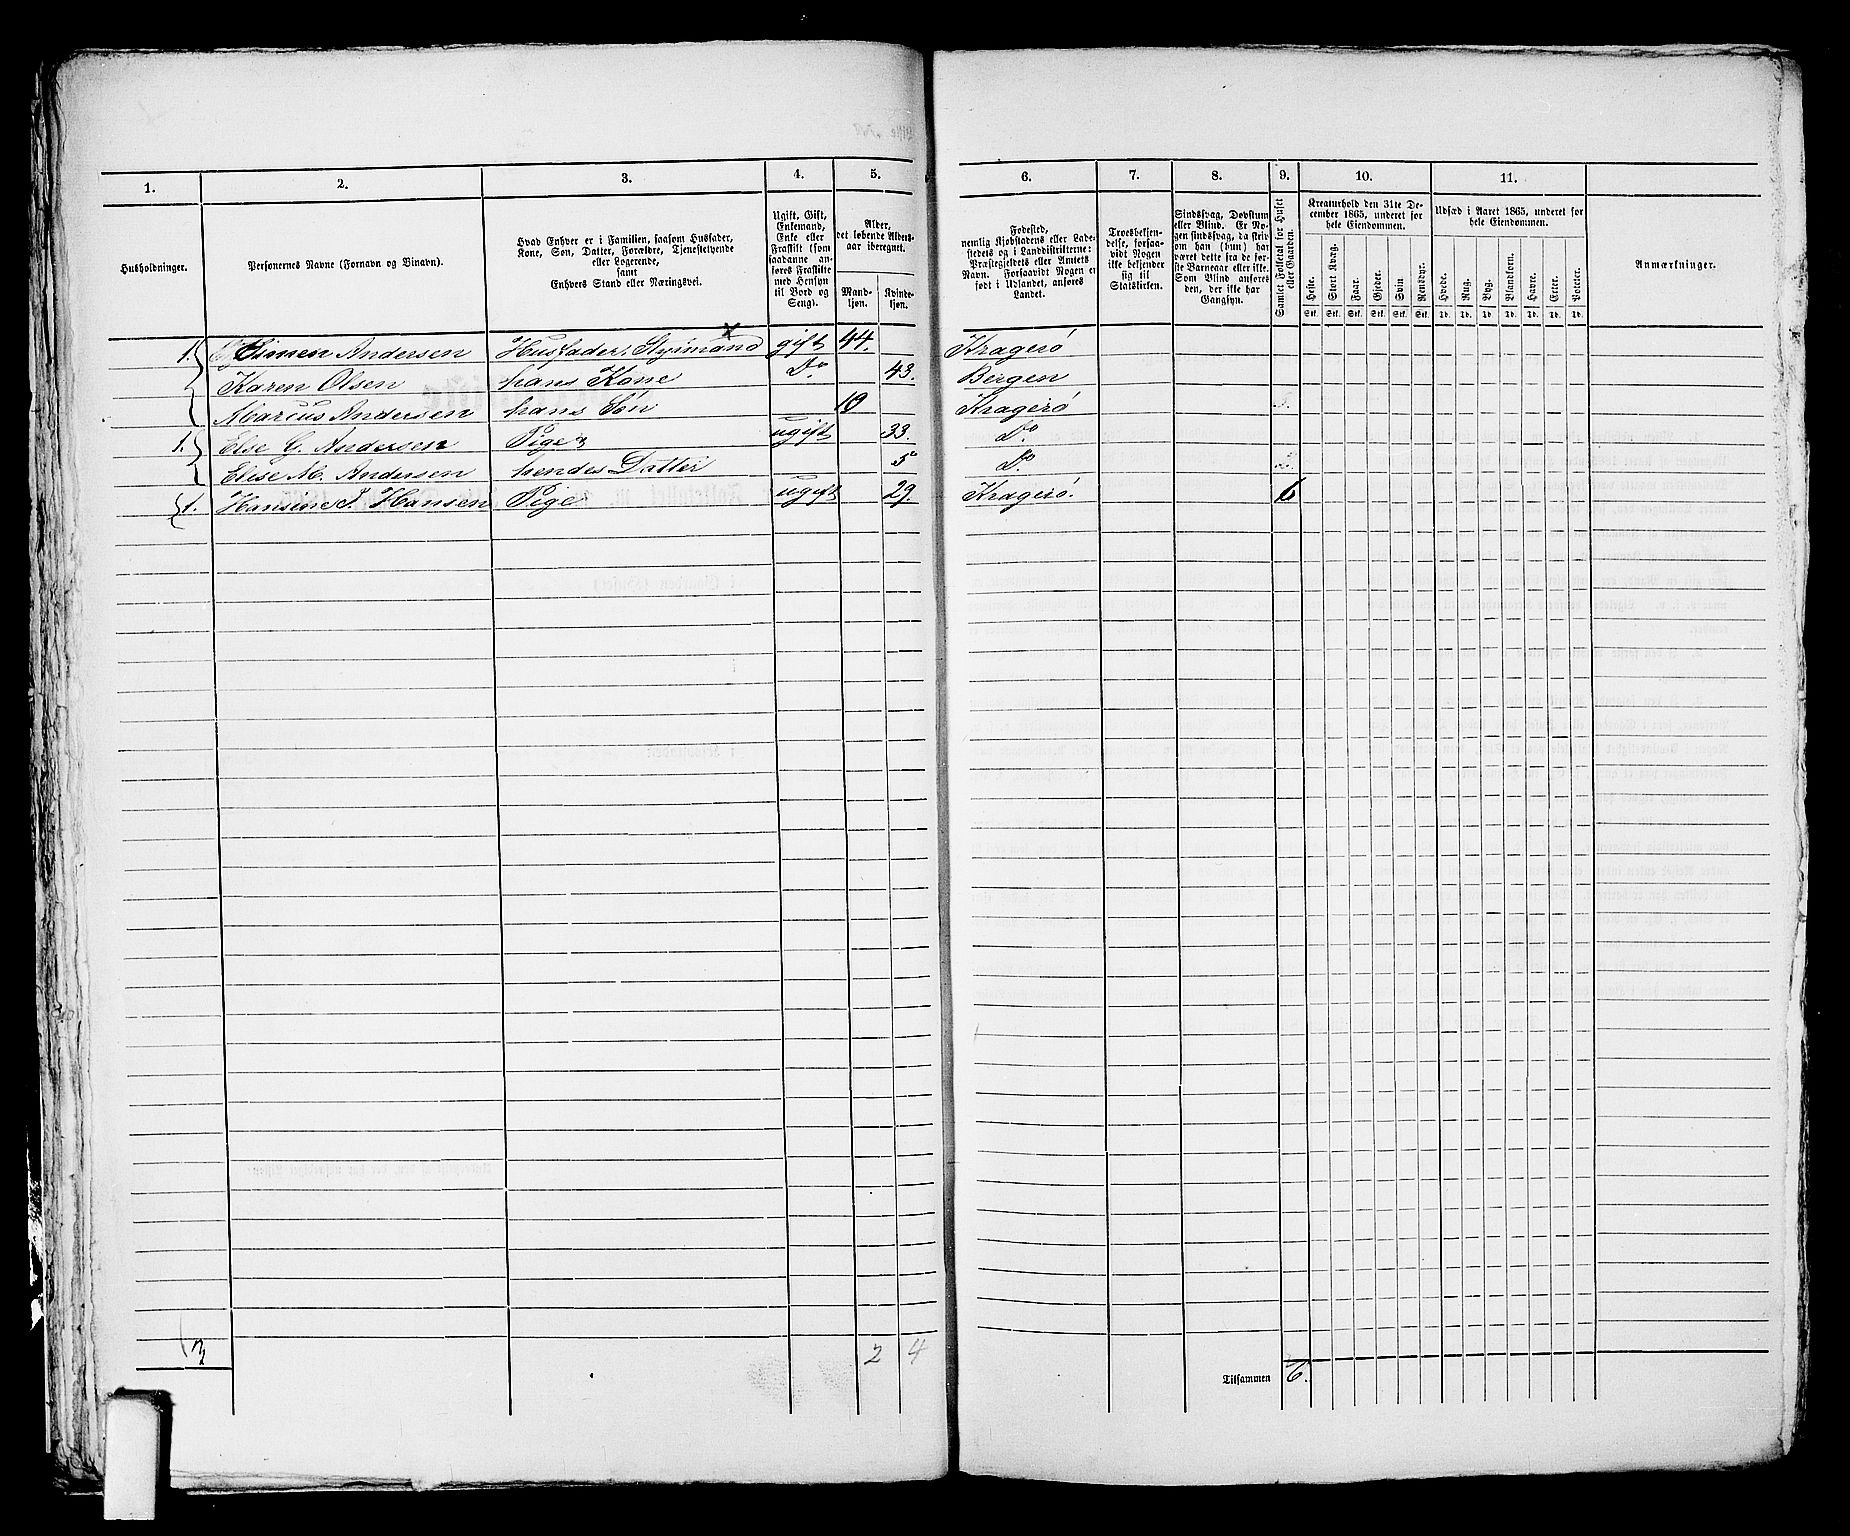 1. 2. 3. 4. 5. 6. 7. 8. 9. 10. 11.
Husholdninger.
Personernes Navne (Fornavn og Binavn).
Hvad Enhver er i Familien, saasom Husfader,
Kone, Søn, Datter, Forældre, Tjenestetyende
eller Logerende,
samt
Enhvers Stand eller Næringsvei.
Ugift, Gift,
Enkemand,
Enke eller
Fraskilt (som
saadanne an-
føres Fraskilte
med Hensyn
til Bord og
Seng).
Alder,
det løbende Alders-
aar iberegnet.
Mand-
kjøn.
Kvinde-
kjøn.
Fødested,
nemlig Kjøbstadens eller Lade-
stedets og i Landdistrikterne:
Præstegjeldets eller Amtets
Navn. Forsaavidt Nogen er
født i Udlandet, anføres
Landet.
Troesbekjen-
delse, forsaa-
vidt Nogen
ikke bekjender
sig til
Statskirken.
Sindssvag, Døvstum
eller Blind. Er No-
gen sindssvag, da skriv
om han (hun) har
været dette fra de før-
ste Barneaar eller ikke.
Som Blind anføres
den, der ikke har
Gangsyn.
Samlet Folketal for Huset
eller Gaarden.
Kreaturhold den 31te De-
cember 1865, underet for
hele Eiendommen.
Heste. Stort Kvæg. Faar. Gjeder. Svin Rensdyr.
Stk. Stk. Stk. Stk. Stk. Stk.
Udsæd i Aaret 1865, underet for
hele Eiendommen.
Hvede. Rug. Byg. Blandkorn. Havre. Erter. Poteter.
Td. Td. Td. Td. Td. Td. Td.
Anmærkninger.
1. Simen Andersen Husfader, gift 44. Kragerö
Karen Olsen hans Kone Do 43. Bergen
Marcus Andersen hans Sön 10 Kragerö
1. Else G. Andersen Pige ugift 33. Do
Elise M. Andersen hendes Datter 5 Do
1. Hansine J. Hansen Pige ugift 29. Kragerö. 6
3 2 4
Tilsammen 6.